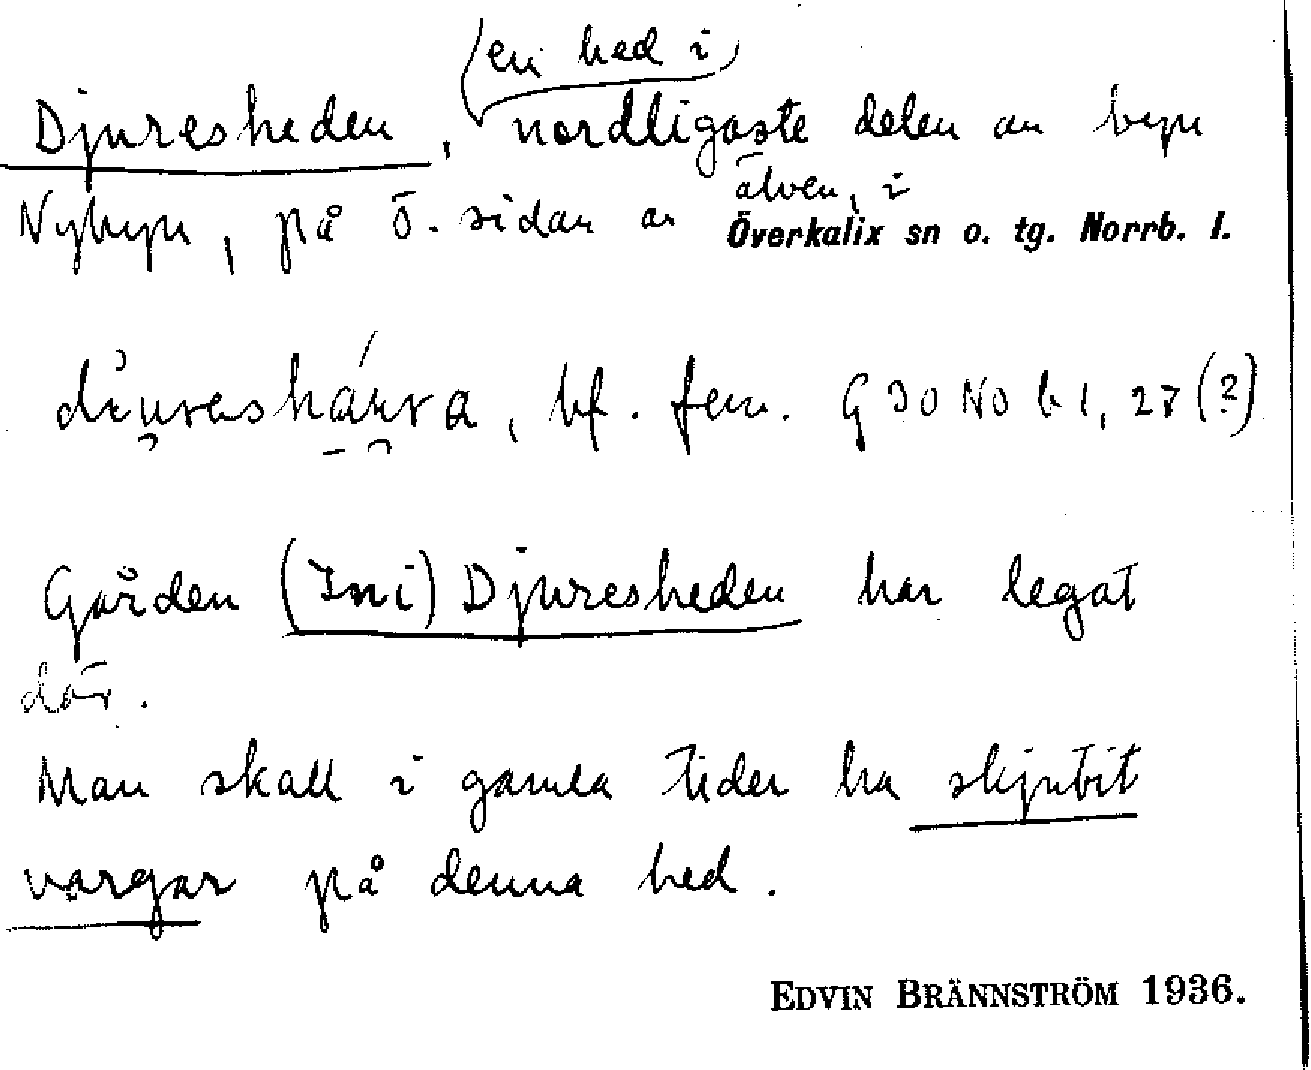 (en hed i)
Djuresheden, nordligaste delen av byn
älven, i
Nybyn, på ö. sidan av Överkalix sn o. tg. Norrb. l.
bf. fem. G 30 No b 1, 27 (?)
Gården (Ini) Djuresheden har legat
där.
Man skall i gamla tider ha skjutit
vargar på denna hed.
EDVIN BRÄNNSTRÖM 1936.